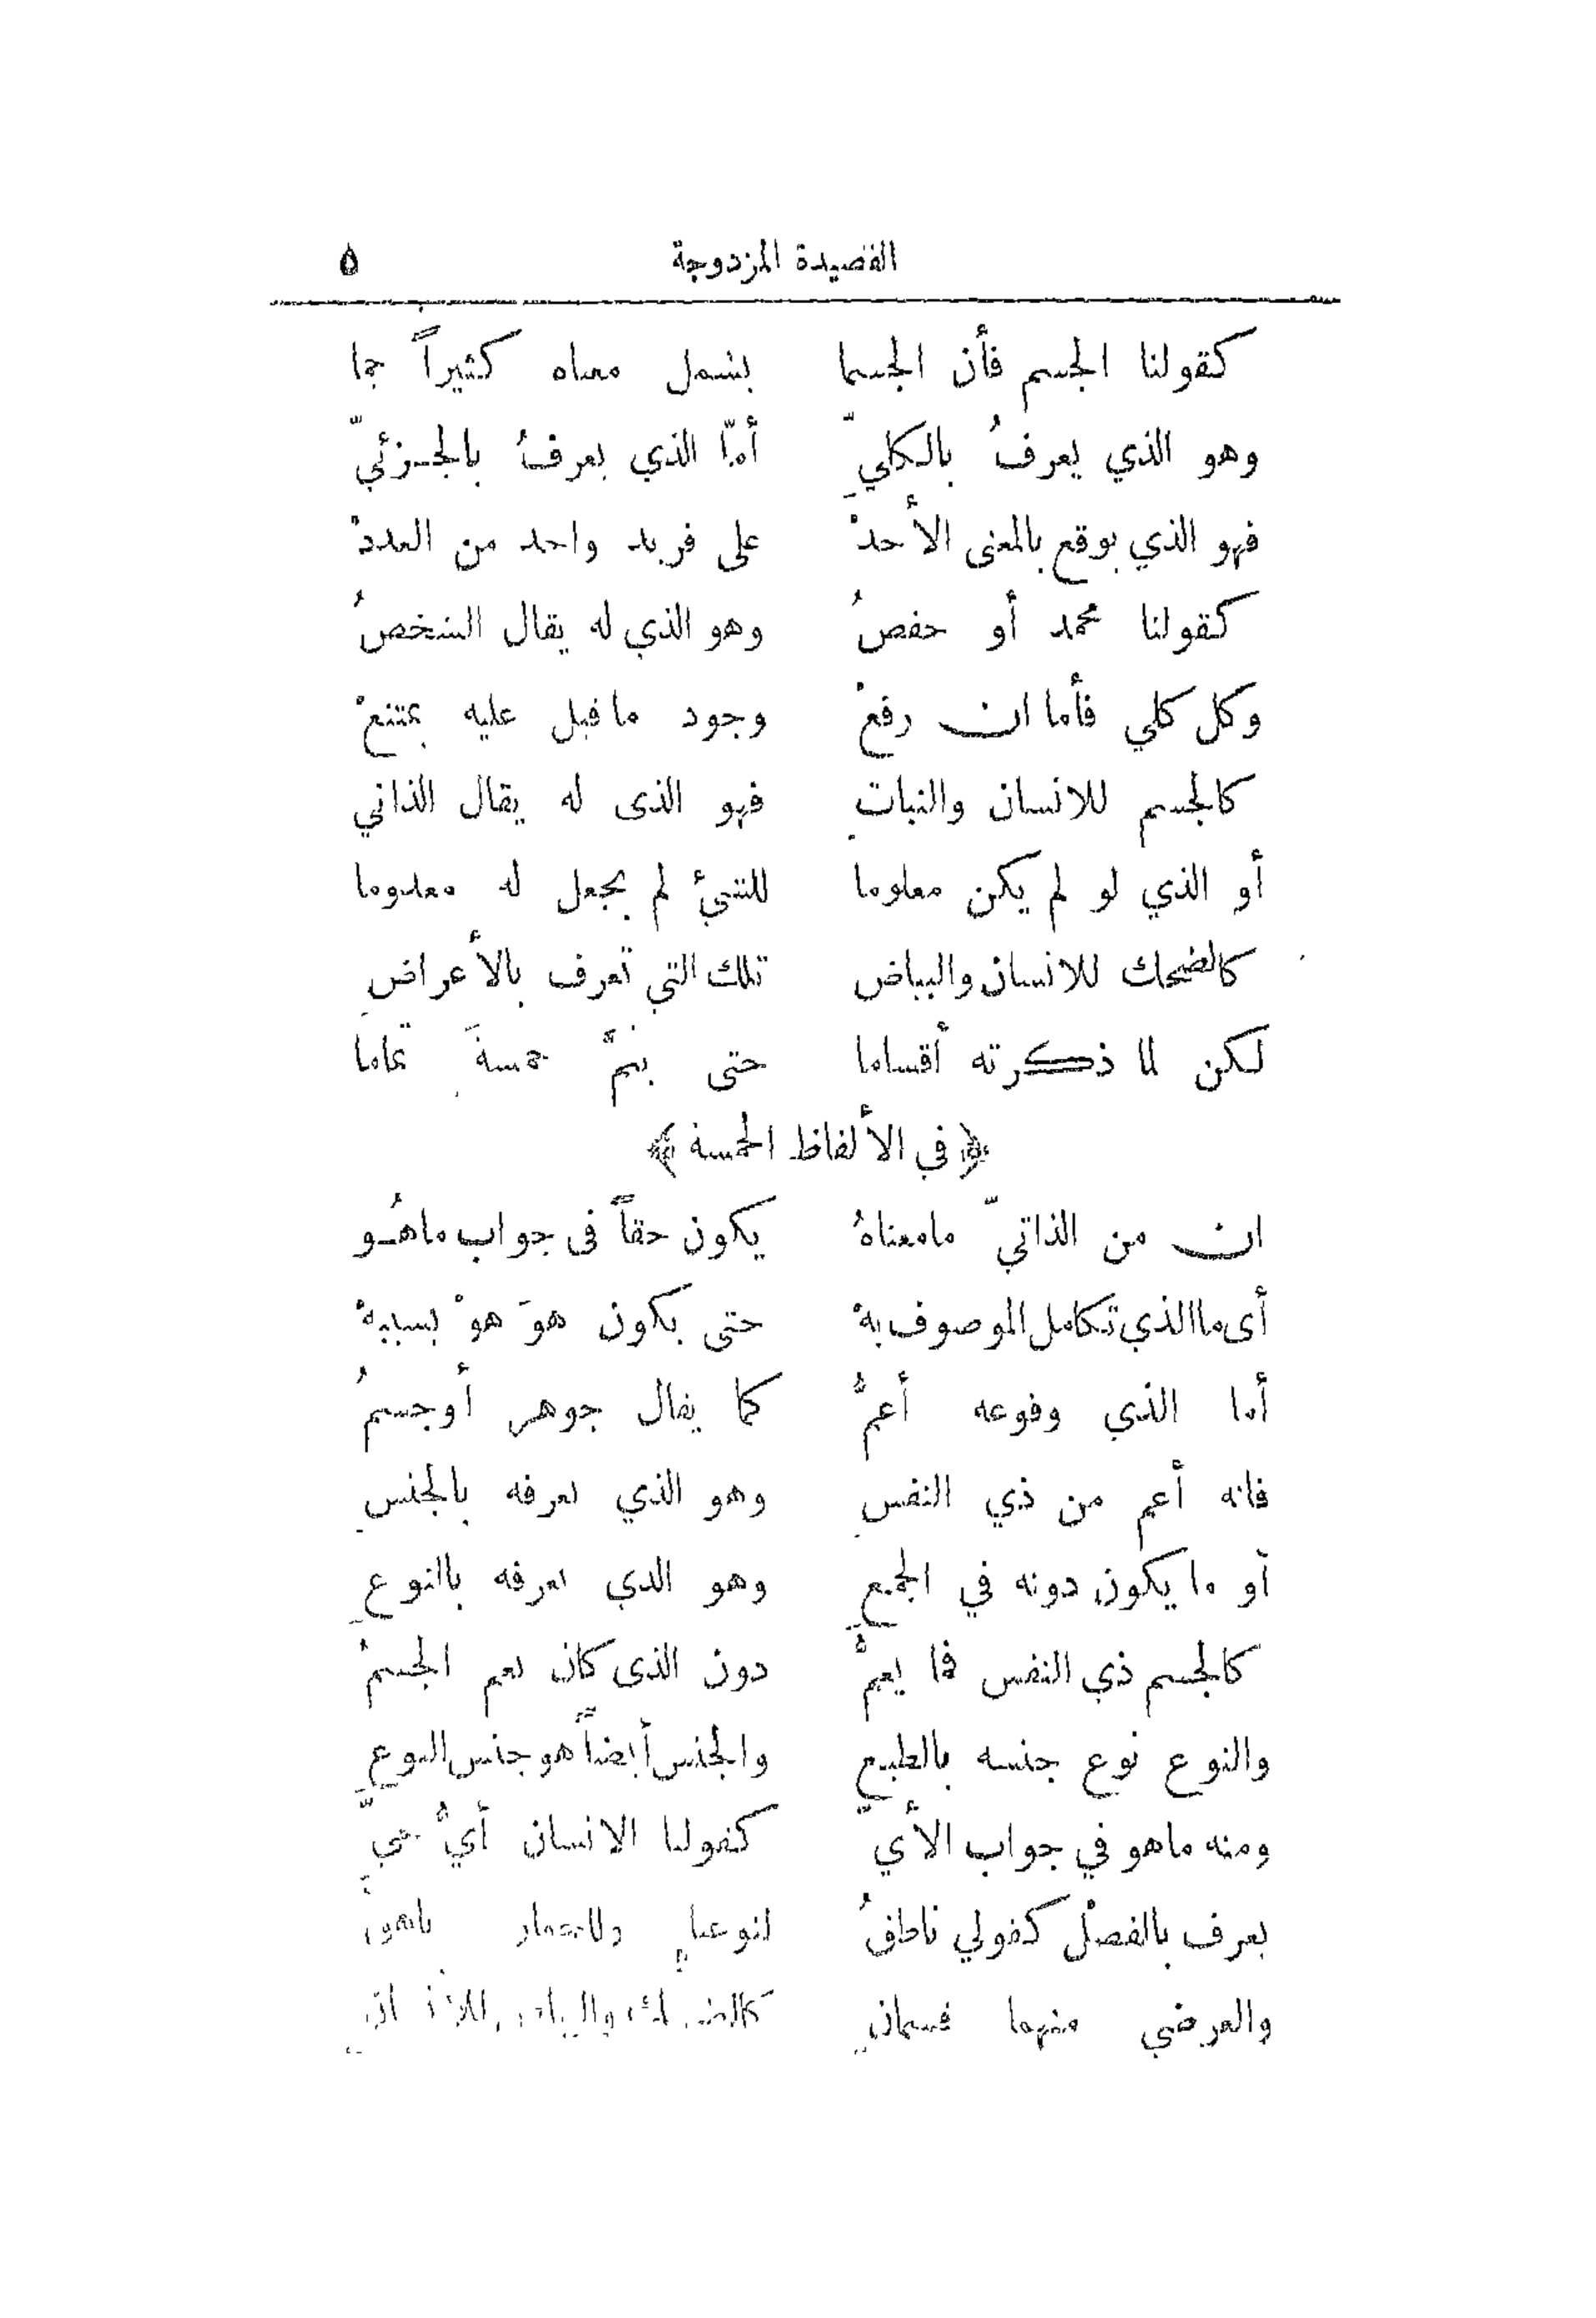 القصيدة المزدوجة ٥
كقولنا الجسم فأن الجسما يشمل معناه كثيراً جما
وهو الذي يعرفُ بالكليِّ أمّا الذي يعرفُ بالجـزئيّ
فهو الذي يوقع بالمعنى الأحدْ على فريد واحد من العددْ
كقولنا محمد أو حفصُ وهو الذي له يقال الشخصُ
وكل كلي فأما ان رفعْ وجود ماقيل عليه يمتنعْ
كالجسم للانسان والنباتِ فهو الذى له يقال الذاتي
أو الذي لو لم يكن معلوما للشيءِ لم يجعل له معدوما
كالضحك للانسان والبياض تلك التي تعرف بالأعراضِ
لكن لما ذكرته أقساما حتى يتمَّ خمسةَ تماما
﴿في الألفاظ الخمسة﴾
ان من الذاتيّ مامعناهُ يكون حقاً فى جواب ماهُـو
أى ماالذي تكامل الموصوف بهْ حتى يكون هوَ هوْ بسببهْ
أما الذي وقوعه أعمُّ كما يقال جوهر أوجسمُ
فانه أعم من ذي النفسِ وهو الذي نعرفه بالجنسِ
أو ما يكون دونه في الجمعِ وهو الذي نعرفه بالنوعِ
كالجسم ذي النفس فما يعمُّ دون الذى كان يعم الجسمُ
والنوع نوع جنسه بالطبعِ والجنس أيضاً هو جنس النوعِ
ومنه ماهو في جواب الأيّ كقولنا الانسان أيُّ حيِّ
يعرف بالفصلْ كقولي ناطقُ وللحمار ناهقُ
والعرضي منهما قسمانِ